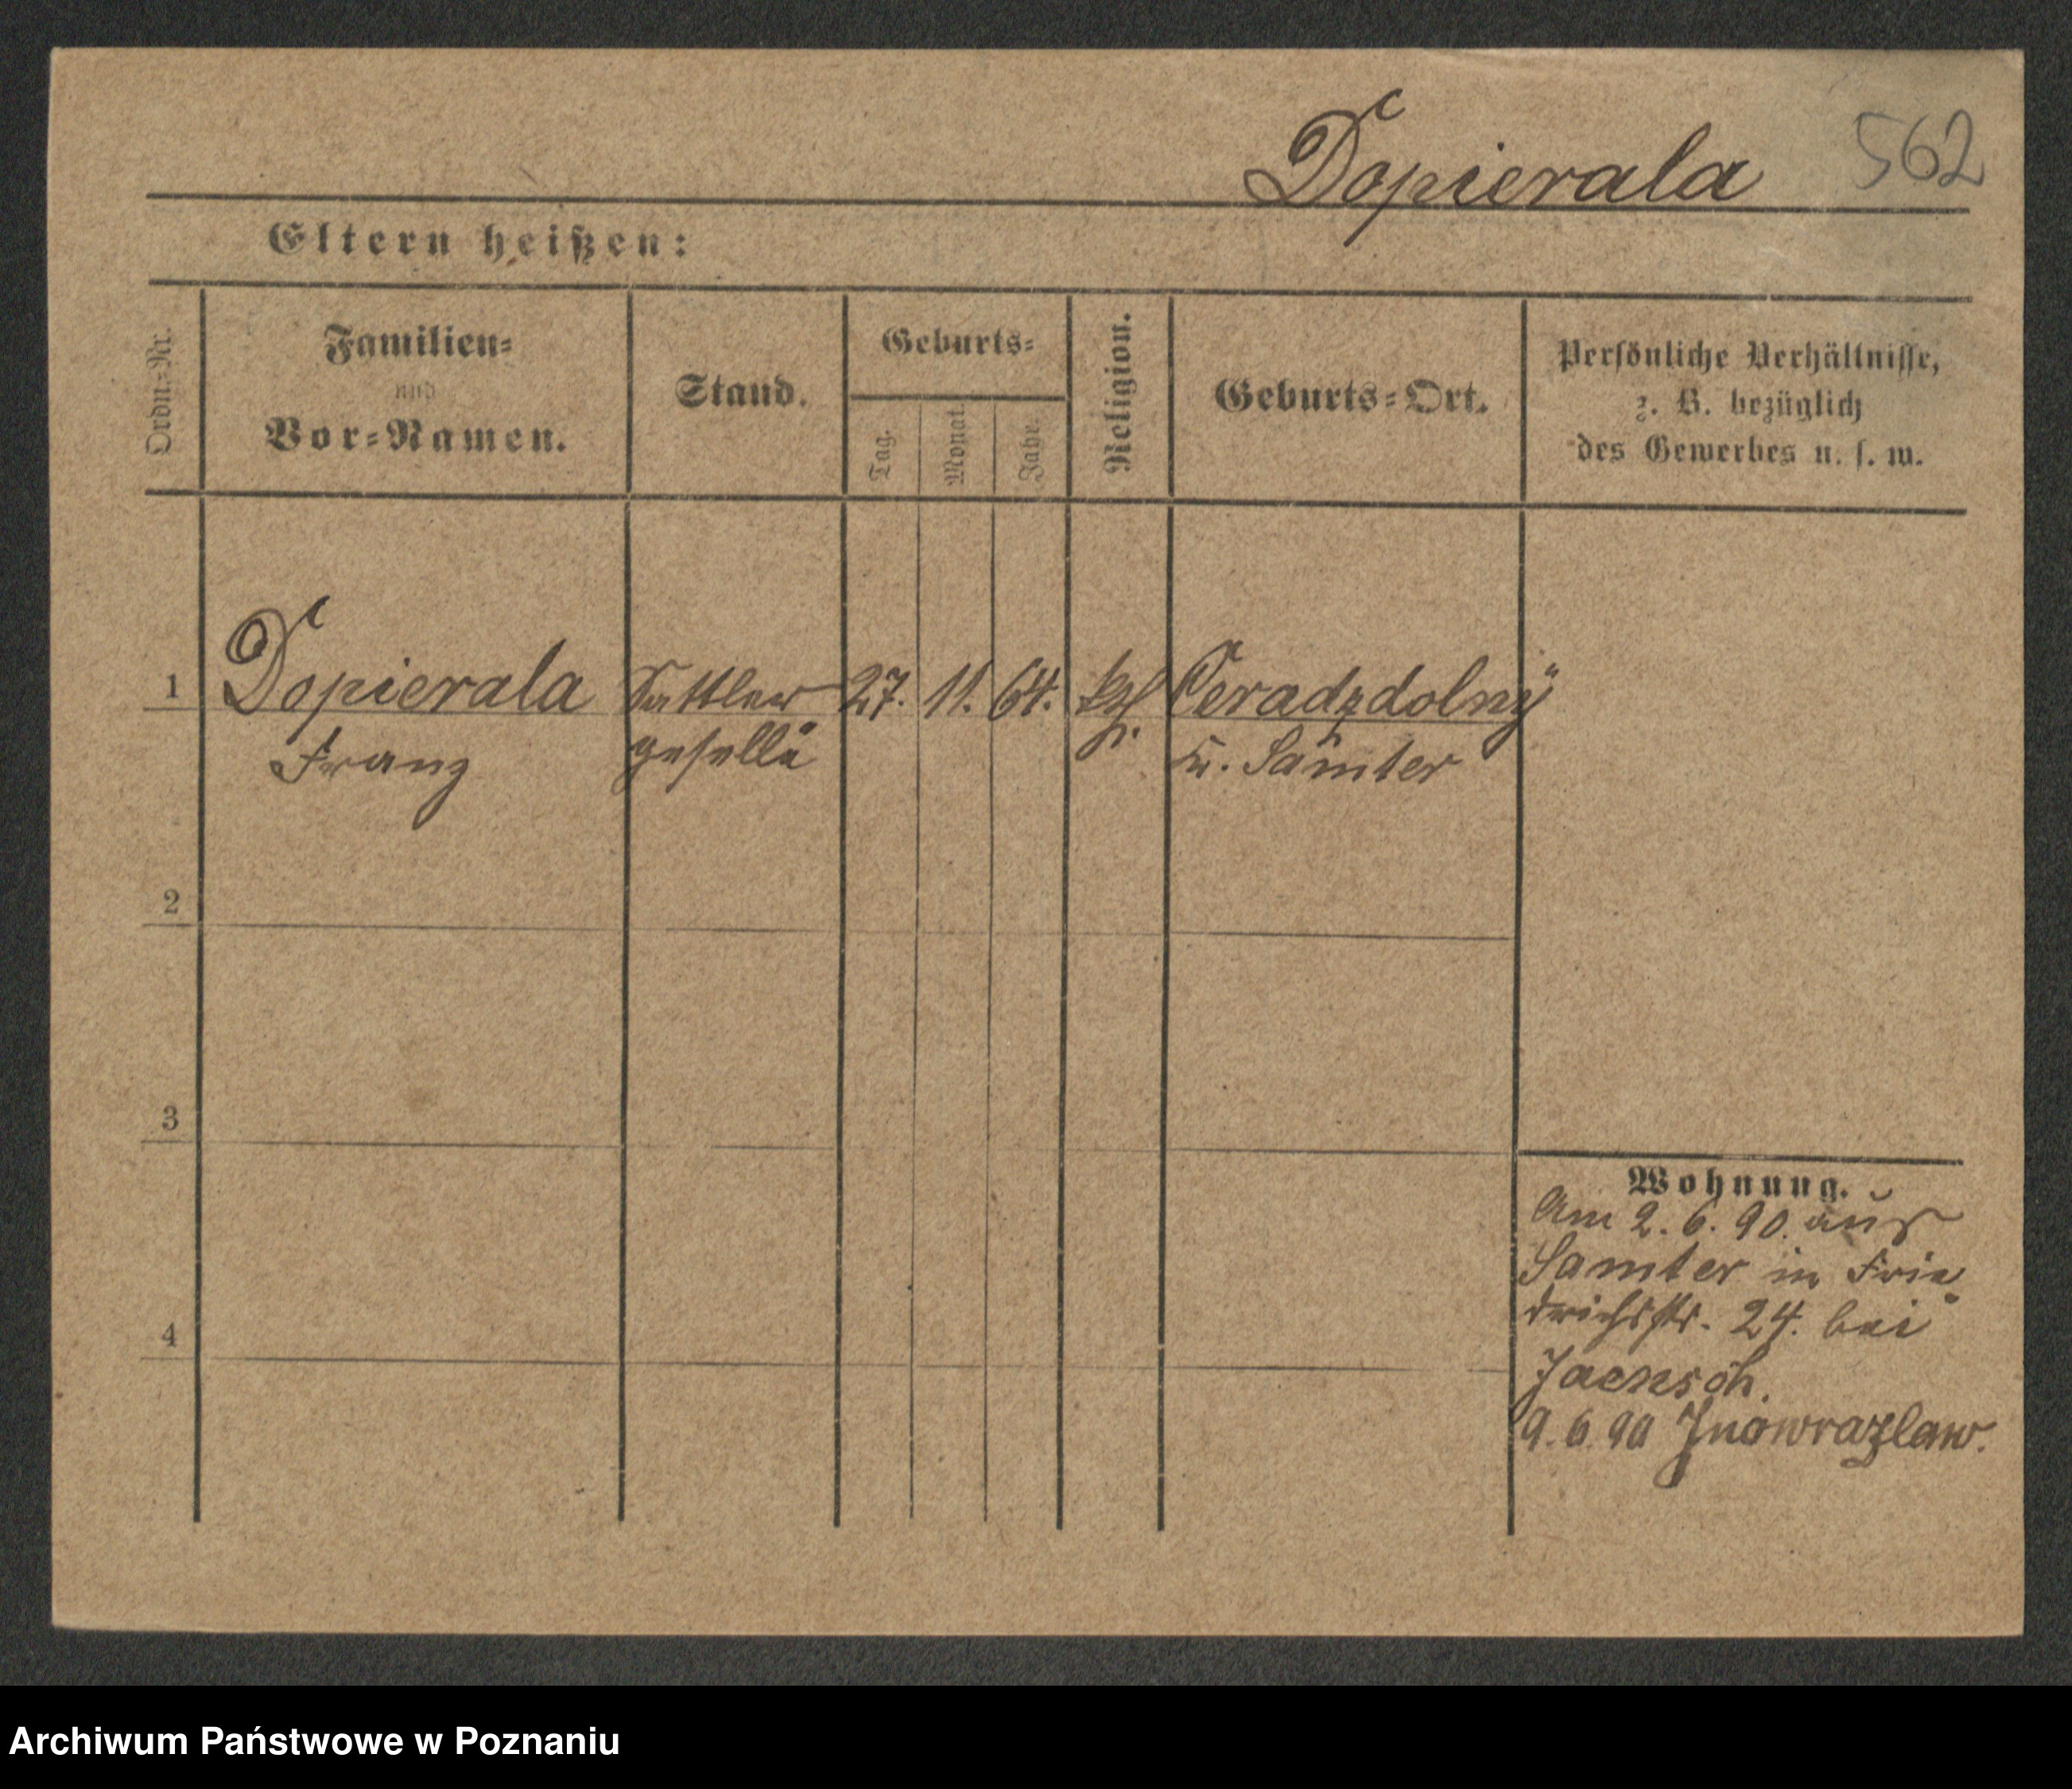 Dopierala 562
Eltern heißen:
Ordn.=Nr.
Familien=
und
Vor=Namen.
Stand.
Geburts=
Tag.
Monat.
Jahr.
Religion.
Geburts=Ort.
Persönliche Verhältnisse,
z. B. bezüglich
des Gewerbes u. s. w.
1 Dopierala Sattler 27. 11. 64. kth. Ceradzdolny
Franz geselle Kr. Samter
2
3
4
Wohnung.
Am 2. 6. 90. aus
Samter in Frie
drichstr. 24. bei
Jaensch.
9. 6. 90 Inowrazlaw.
Archiwum Państwowe w Poznaniu